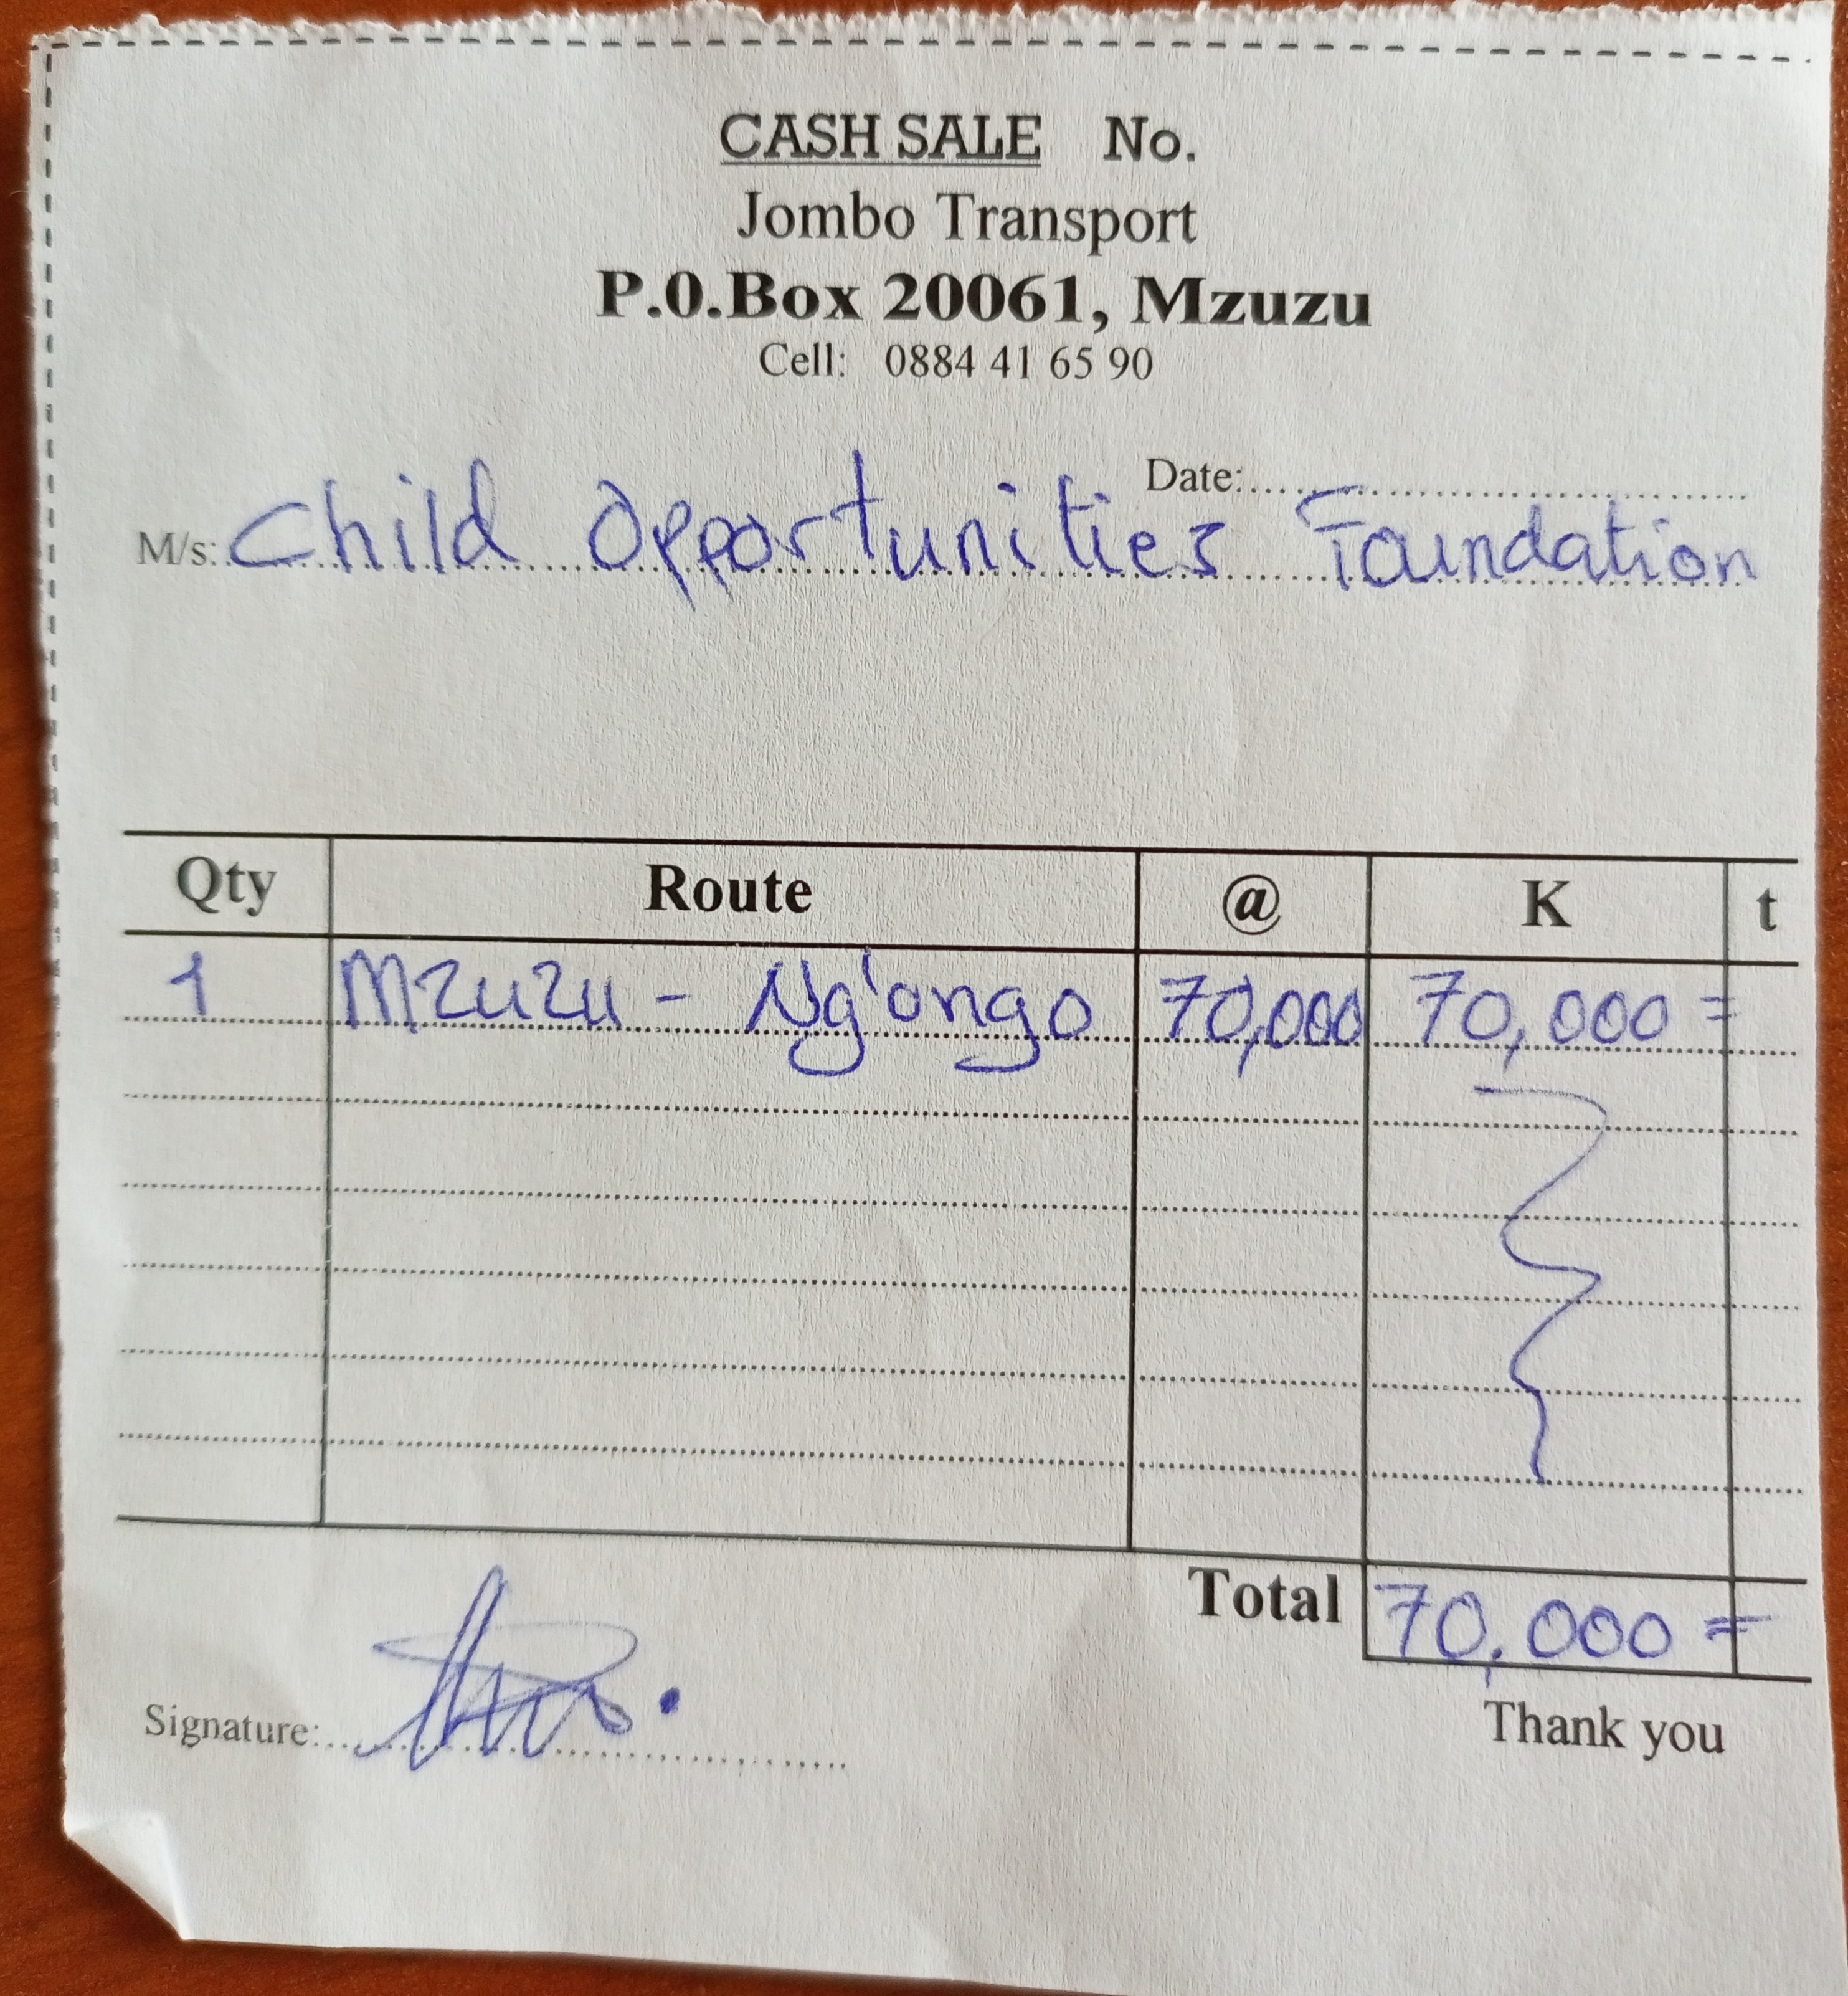 CASH SALE No.
Jombo Transport
P.O.Box 20061, Mzuzu
Cell: 0884 41 65 90
Date:
M/s: Child Opportunities Foundation
Qty Route @ K t
1 Mzuzu - Ng'ongo 70,000 70,000 =
Total 70,000 =
Signature:
Thank you